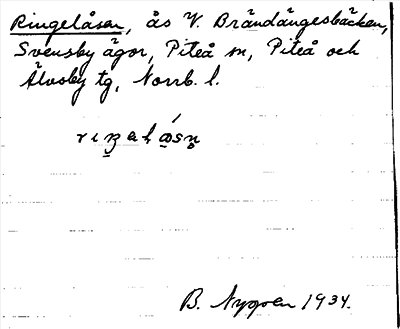 Ringelåsen, ås V. Brändängesbäcken,
Svensby ägor, Piteå sn, Piteå och
Älvsby tg, Norrb. l.
B. Nygren 1934.